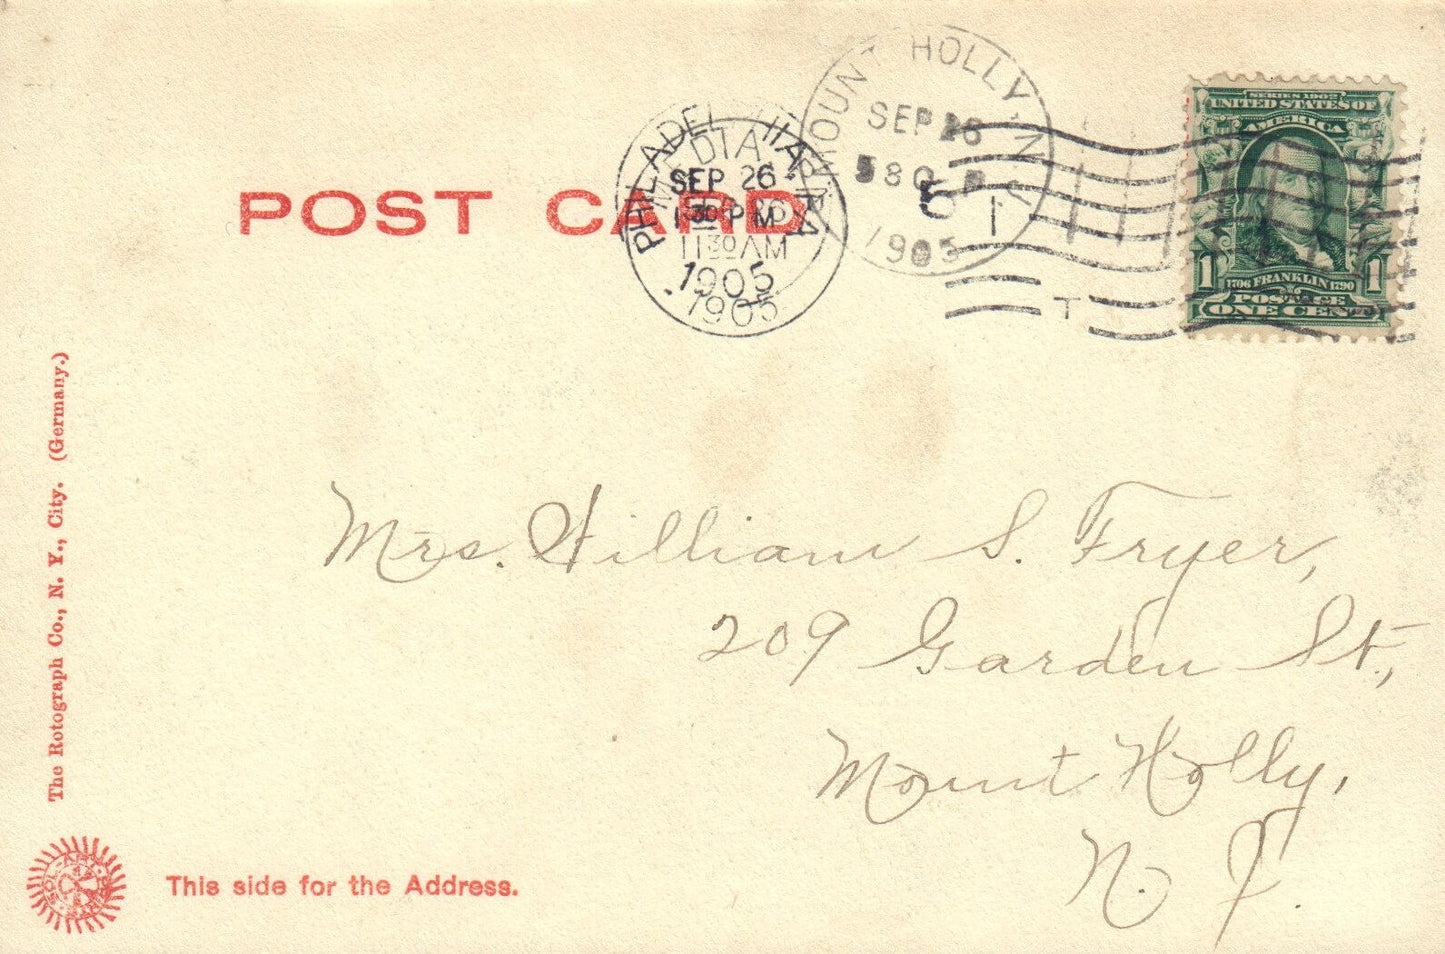 MOUNT HOLLY N J
SEP 26
1905
PHILADELPHIA
MEDIA
SEP 26
1 30 PM
11 30 AM
1905
1905
SERIES 1902
UNITED STATES OF
AMERICA
1 1
1706 FRANKLIN 1790
POSTAGE
ONE CENT
POST CARD
The Rotograph Co., N. Y., City. (Germany.)
Mrs. William S. Fryer,
209 Garden St.,
Mount Holly,
N. J.
This side for the Address.